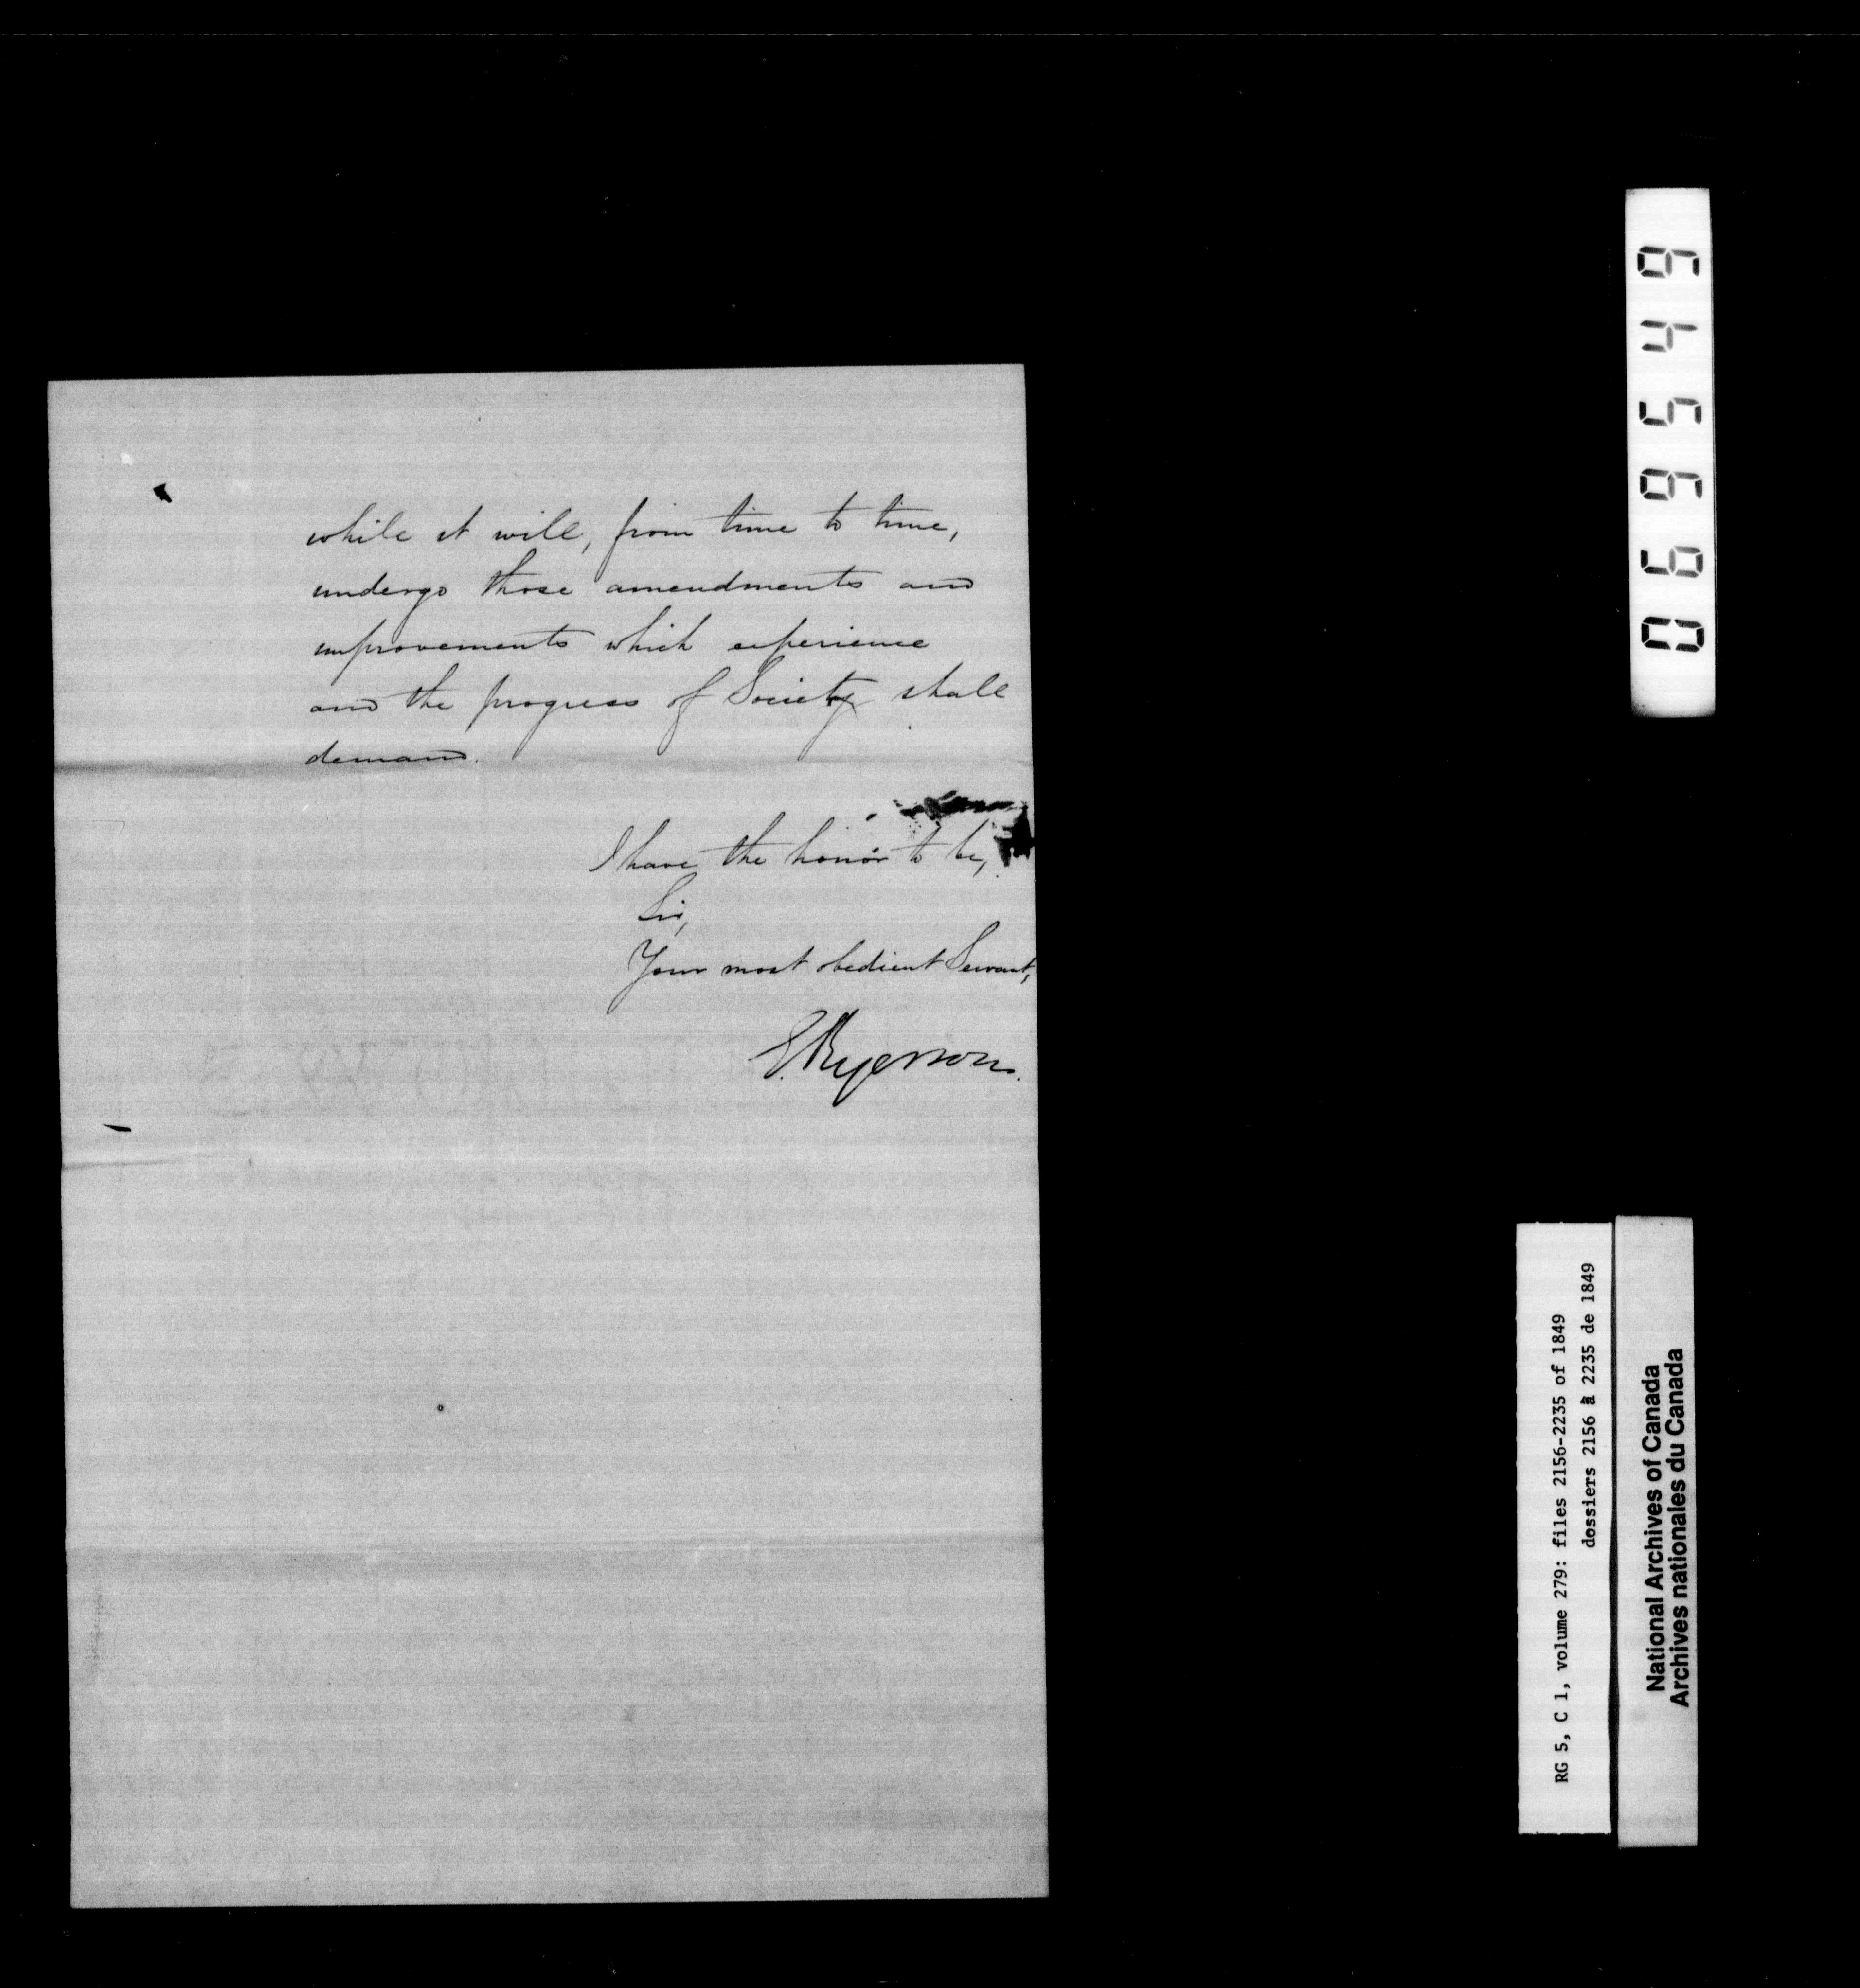 while it will, from time to time,
undergo those amendments and
improvements which experience
and the progress of Society shall
demand.
I have the honor to be,
Sir,
Your most obedient Servant,
E. Ryerson.
069549
RG 5, C 1, volume 279: files 2156-2235 of 1849
dossiers 2156 à 2235 de 1849
National Archives of Canada
Archives nationales du Canada